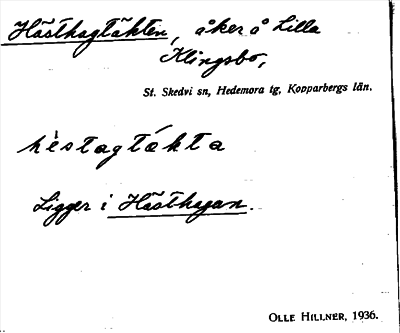 Hästhagtäkten, åker å Lilla
Klingsbo,
St. Skedvi sn, Hedemora tg, Kopparbergs län.
hèstagtákta
Ligger i Hästhagan.
OLLE HILLNER, 1936.